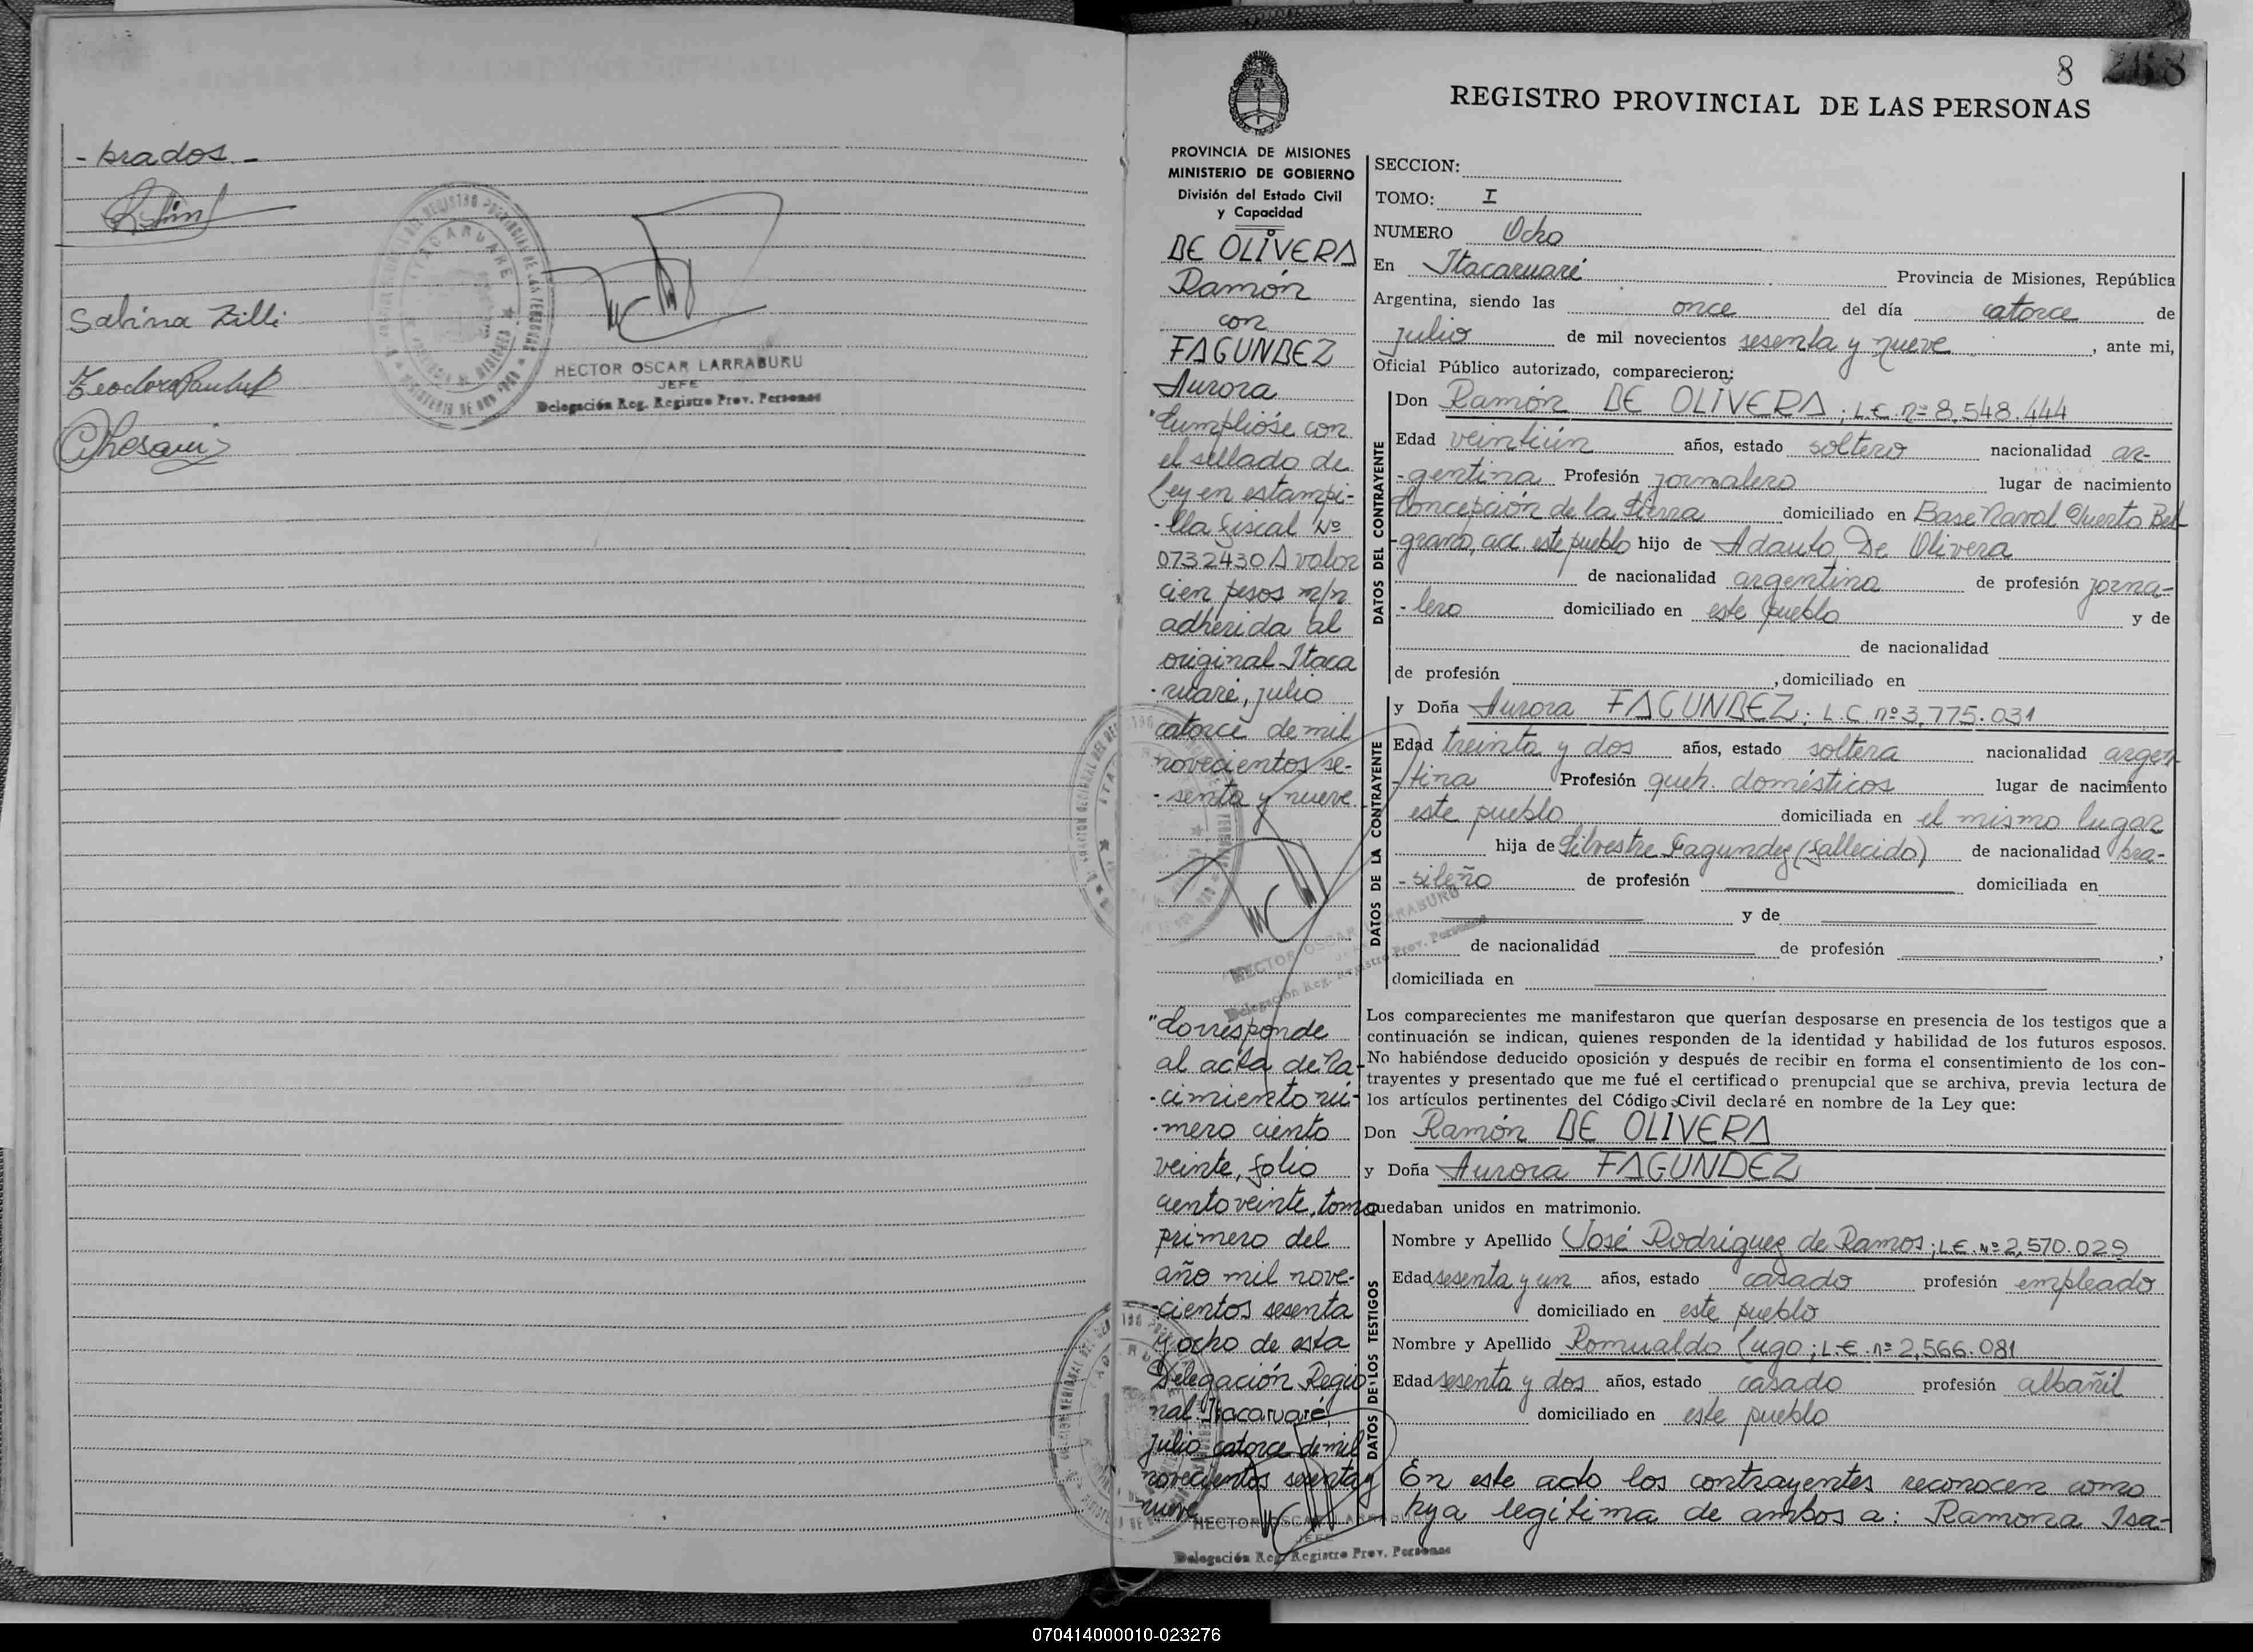 - brados. -
Sabina Zilli
HECTOR OSCAR LARRABURU
JEFE
Delegación Reg. Registro Prov. Personas
8
268
REGISTRO PROVINCIAL DE LAS PERSONAS
PROVINCIA DE MISIONES
MINISTERIO DE GOBIERNO
División del Estado Civil
y Capacidad
DE OLIVERA
Ramón
con
FAGUNDEZ
Aurora
"Cumplióse con
el sellado de
Ley en estampi-
-lla fiscal Nº
0732430 A valor
cien pesos m/n
adherida al
original. Itaca
-ruaré, julio
catorce de mil
novecientos se-
-senta y nueve
HECTOR OSCAR LARRABURU
Delegación Reg. Registro Prov. Personas
"Corresponde
al acta de Na-
-cimiento nú-
-mero ciento
veinte, folio
ciento veinte, tomo
primero del
año mil nove-
-cientos sesenta
y ocho de esta
Delegación Regio
nal. Itacaruaré,
julio catorce de mil
novecientos sesenta y
nueve
HECTOR OSCAR LARRABURU
JEFE
Delegación Reg. Registro Prov. Personas
SECCION:
TOMO: I
NUMERO Ocho
En Itacaruaré Provincia de Misiones, República
Argentina, siendo las once del día catorce de
julio de mil novecientos sesenta y nueve, ante mi,
Oficial Público autorizado, comparecieron:
DATOS DEL CONTRAYENTE
Don Ramón DE OLIVERA; L.E. nº 8,548.444
Edad veintiún años, estado soltero nacionalidad ar-
-gentina Profesión jornalero lugar de nacimiento
Concepción de la Sierra domiciliado en Base Naval Puerto Bel-
-grano, acc. este pueblo hijo de Adauto De Olivera
de nacionalidad argentina de profesión jorna-
-lero domiciliado en este pueblo y de
de nacionalidad
de profesión , domiciliado en
DATOS DE LA CONTRAYENTE
y Doña Aurora FAGUNDEZ; L.C. nº 3,775.031
Edad treinta y dos años, estado soltera nacionalidad argen
-tina Profesión queh. domésticos lugar de nacimiento
este pueblo domiciliada en el mismo lugar
hija de Silvestre Fagundez (fallecido) de nacionalidad bra-
-sileño de profesión domiciliada en
y de
de nacionalidad de profesión ,
domiciliada en
Los comparecientes me manifestaron que querían desposarse en presencia de los testigos que a
continuación se indican, quienes responden de la identidad y habilidad de los futuros esposos.
No habiéndose deducido oposición y después de recibir en forma el consentimiento de los con-
trayentes y presentado que me fué el certificado prenupcial que se archiva, previa lectura de
los artículos pertinentes del Código Civil declaré en nombre de la Ley que:
Don Ramón DE OLIVERA
y Doña Aurora FAGUNDEZ
quedaban unidos en matrimonio.
DATOS DE LOS TESTIGOS
Nombre y Apellido José Rodriguez de Ramos; L.E. Nº 2,570.029
Edad sesenta y un años, estado casado profesión empleado
domiciliado en este pueblo
Nombre y Apellido Romualdo Lugo; L.E. nº 2,566.081
Edad sesenta y dos años, estado casado profesión albañil
domiciliado en este pueblo
En este acto los contrayentes reconocen como
hija legítima de ambos a: Ramona Isa-
070414000010-023276